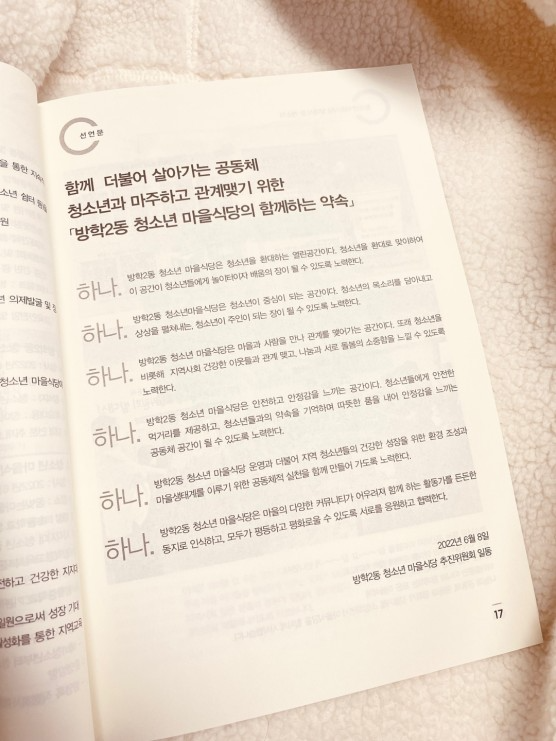 선언문
함께 더불어 살아가는 공동체
청소년과 마주하고 관계맺기 위한
「방학2동 청소년 마을식당의 함께하는 약속」
하나. 방학2동 청소년 마을식당은 청소년을 환대하는 열린공간이다. 청소년을 환대로 맞이하여
이 공간이 청소년들에게 놀이터이자 배움의 장이 될 수 있도록 노력한다.
하나. 방학2동 청소년마을식당은 청소년이 중심이 되는 공간이다. 청소년의 목소리를 담아내고
상상을 펼쳐내는, 청소년이 주인이 되는 장이 될 수 있도록 노력한다.
하나. 방학2동 청소년 마을식당은 마을과 사람을 만나 관계를 맺어가는 공간이다. 또래 청소년을
비롯해 지역사회 건강한 이웃들과 관계 맺고, 나눔과 서로 돌봄의 소중함을 느낄 수 있도록
노력한다.
하나. 방학2동 청소년 마을식당은 안전하고 안정감을 느끼는 공간이다. 청소년들에게 안전한
먹거리를 제공하고, 청소년들과의 약속을 기억하며 따뜻한 품을 내어 안정감을 느끼는
공동체 공간이 될 수 있도록 노력한다.
하나. 방학2동 청소년 마을식당 운영과 더불어 지역 청소년들의 건강한 성장을 위한 환경 조성과
마을생태계를 이루기 위한 공동체적 실천을 함께 만들어 가도록 노력한다.
하나. 방학2동 청소년 마을식당은 마을의 다양한 커뮤니티가 어우러져 함께 하는 활동가를 든든한
동지로 인식하고, 모두가 평등하고 평화로울 수 있도록 서로를 응원하고 협력한다.
2022년 6월 8일
방학2동 청소년 마을식당 추진위원회 일동
17
을 통한 지속
소년 쉼터
원
년 의제발굴 및
청소년 마을식당
전하고 건강한 지지
일원으로써 성장
성화를 통한 지역